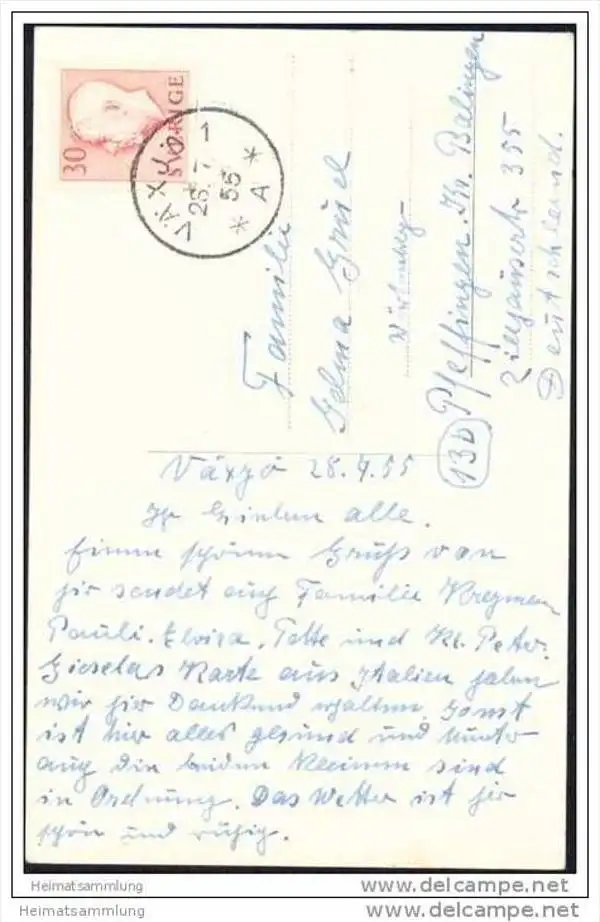 30
SVERIGE
VÄXJÖ 1
28. 7.
55
* A *
Familie
Selma Grüel
Württemberg
(13b) Pfeffingen. Kr. Balingen
355
Deutschland.
Växjö 28.7.55
Ihr Lieben alle.
Einen schönen Gruß von
hir sendet auch Familie
Pauli. Elvira. Totte und Kl. Peter.
Gieselas Karte aus Italien haben
wir hir Dankend erhalten, sonst
ist hir alles gesund und munter
auch die beiden Kleinen sind
in Ordnung. Das Wetter ist hir
schön und ruhig.
Heimatsammlung
www.delcampe.net
Heimatsammlung
www.delcampe.net